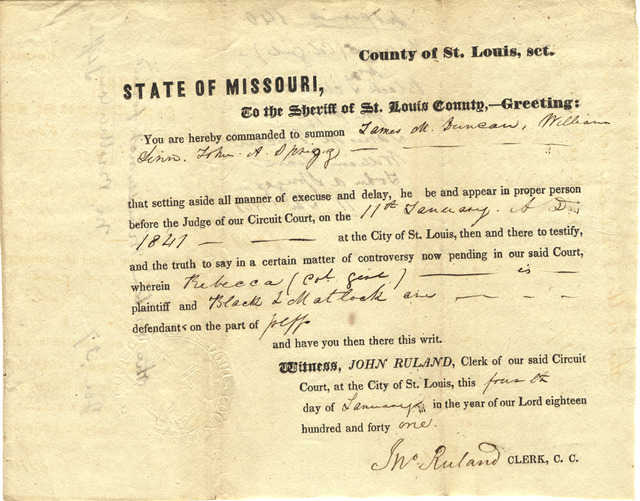 County of St. Louis, sct.
STATE OF MISSOURI,
To the Sheriff of St. Louis County,—Greeting:
You are hereby commanded to summon James M. Duncan, William
Linn. John. A Sprigg —
that setting aside all manner of execuse and delay, he be and appear in proper person
before the Judge of our Circuit Court, on the 11th January. A D.
1841 — — at the City of St. Louis, then and there to testify,
and the truth to say in a certain matter of controversy now pending in our said Court,
wherein Rebecca (Col. girl) — is —
plaintiff and Black & Matlock are — — —
defendants on the part of plff
and have you then there this writ.
Witness, JOHN RULAND, Clerk of our said Circuit
Court, at the City of St. Louis, this fourth
day of January in the year of our Lord eighteen
hundred and forty one.
Jno Ruland CLERK, C. C.